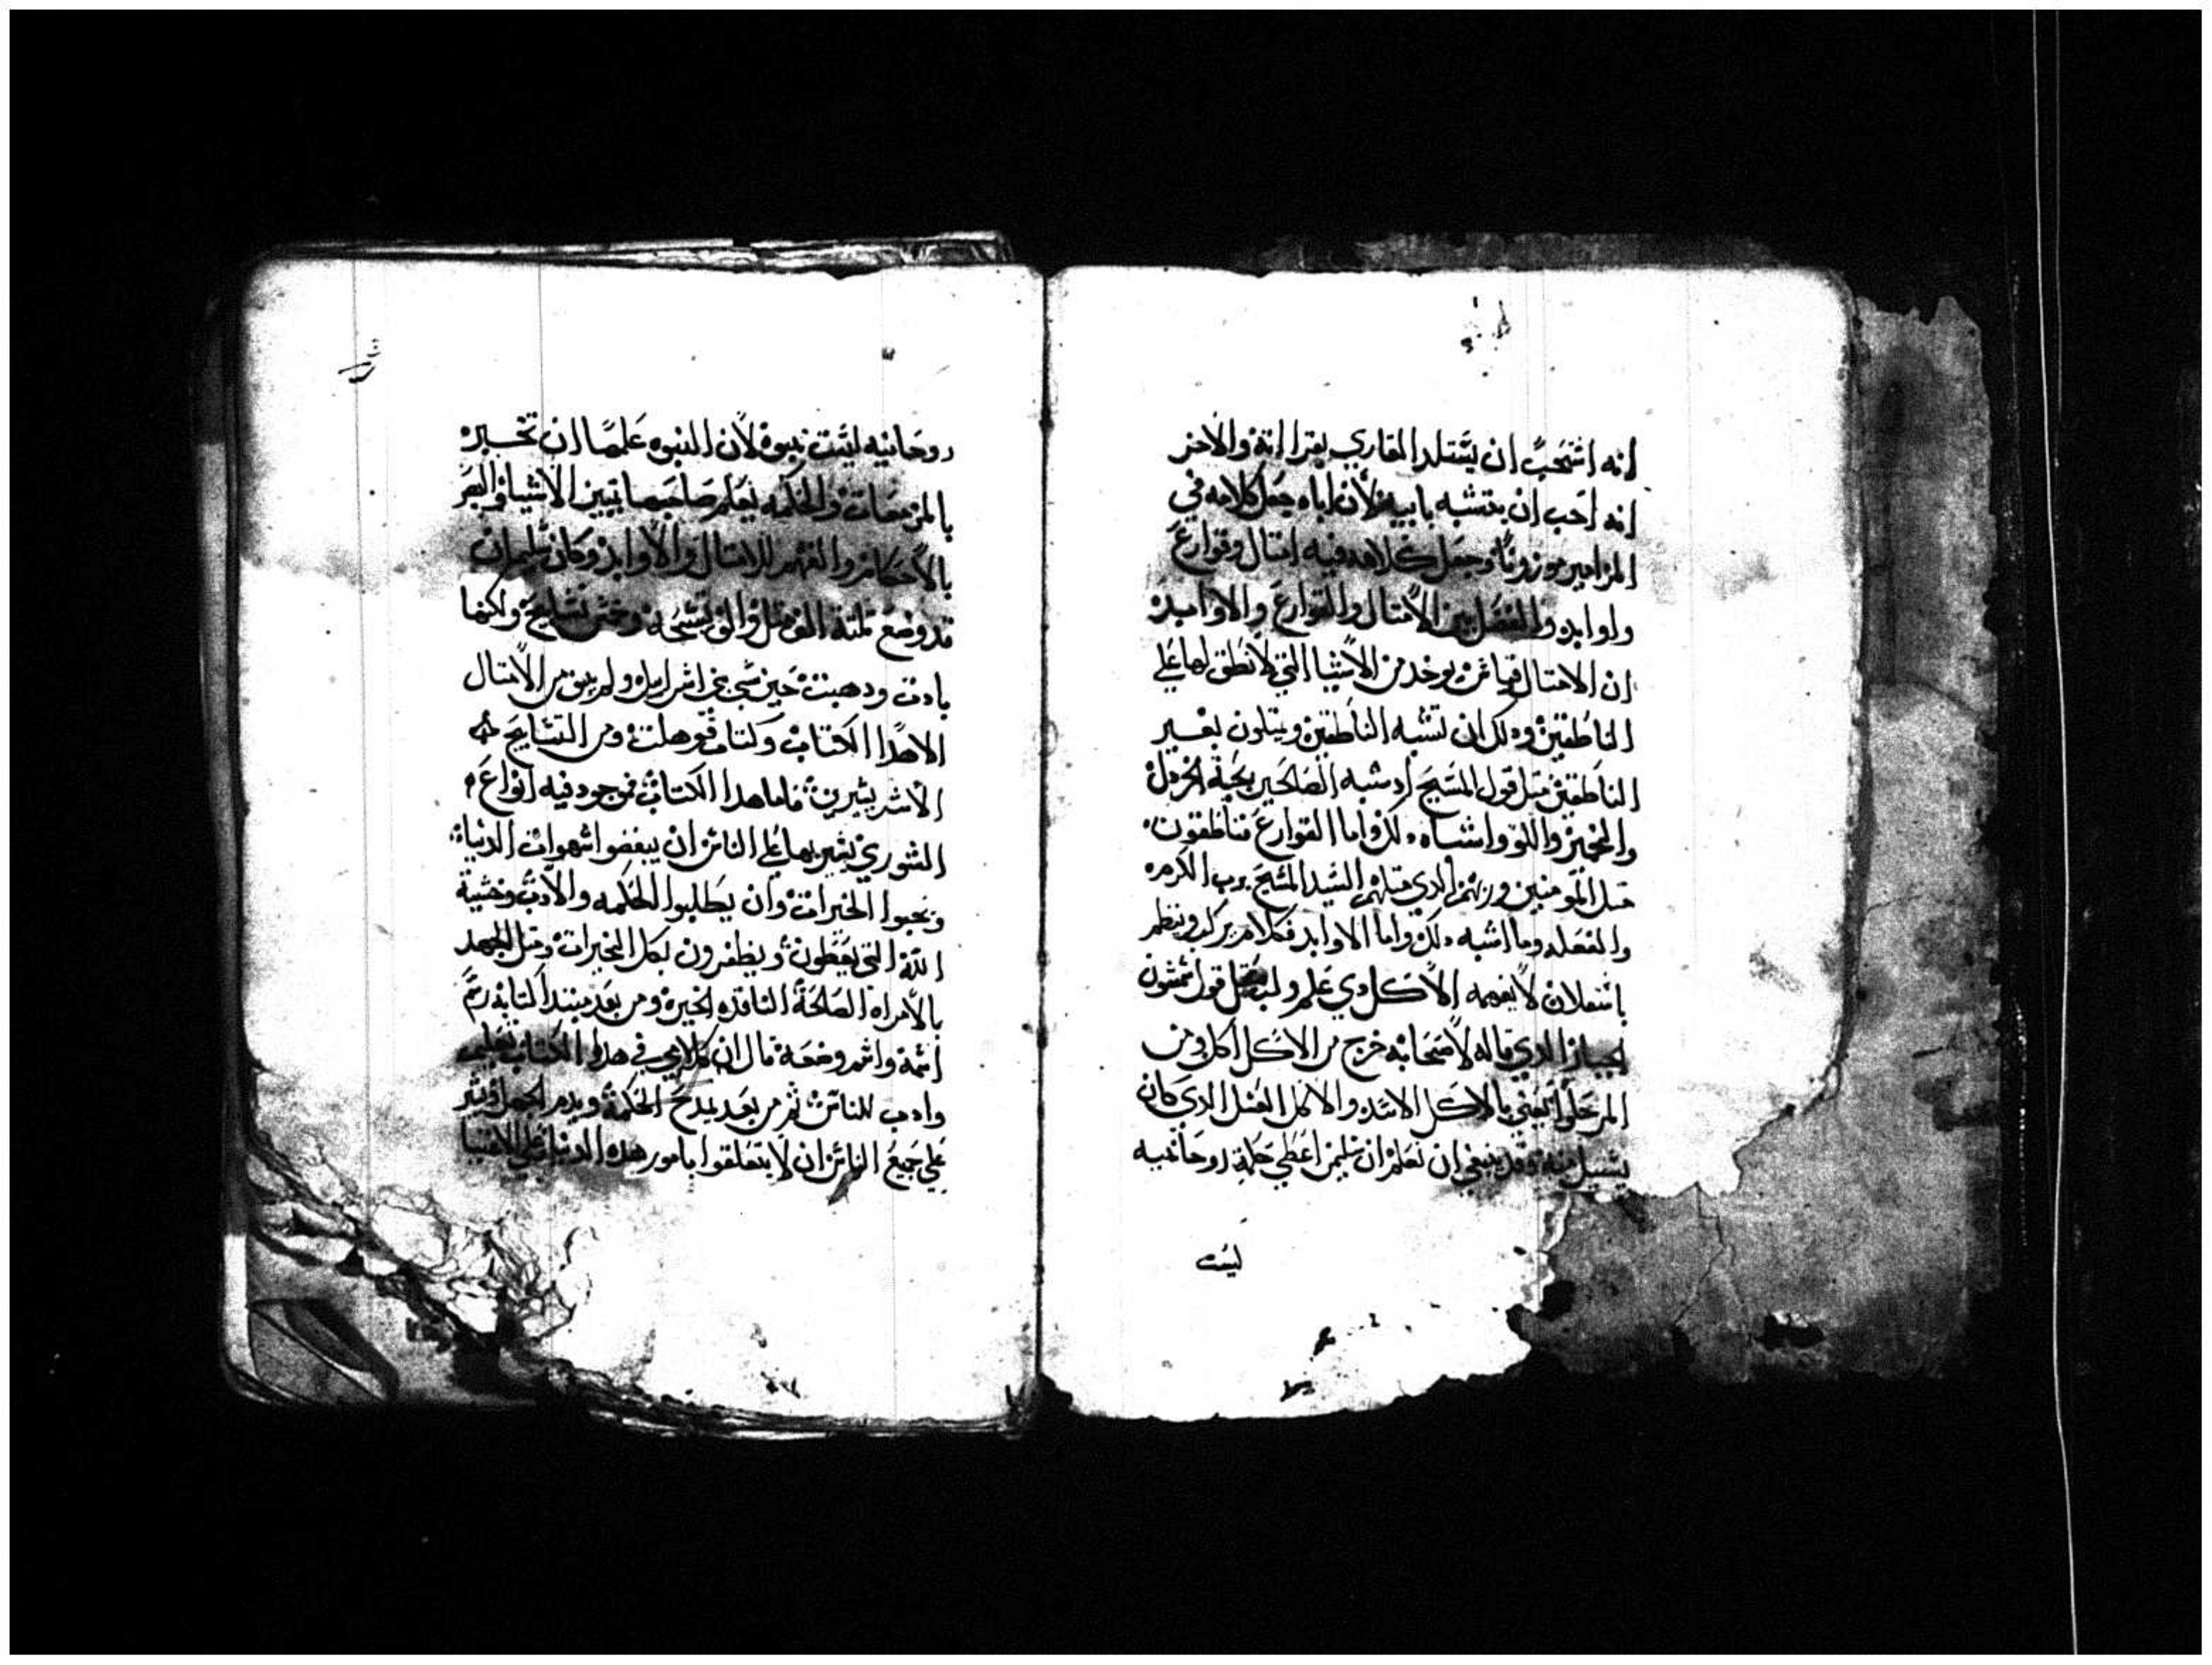 انه اشتحب ان يستلد القاري بقراانه والاخر
انه احب ان يتشبه بابيه لان اباه جعل كلامه في
المزامير موزونًا وجعل كلامه فيه امتال وقوارع
واوابد والفصل بين الامتال والقوارع والاوابد
ان الامتال قياس يوخد من الاشيا التي لا نطق لها علي
الناطقين ودلك ان تشبه الناطقين ويتلون بغير
الناطقين متل قول المسيح اد شبه الصالحين بحبة الخردل
والخمير واللولو واشباه دلك واما القوارع فناطقون
متل المومنين ورتهم الدي متلهم السيد المسيح برب الكرمه
والفعله وما اشبه دلك واما الاوابد فكلام يركب وينظم
باشعلان لا يفهمه الا كل دي علم ولب متل قول شمشون
الجبار الدي قاله لاصحابه خرج من الاكل اكل ومن
المر حلوا يعني بالاكل الاسد والاكل العسل الدي كان
يسيل منه وقد ينبغي ان نعلم ان سليمن اعطي حكمة روحانيه
ليست
روحانيه ليست نبوة لان النبوه علمها ان تخبر
بالمزمعات والحكمه يعلم صاحبها تبيين الاشيا والبصر
بالاحكام والفهم للامتال والاوابد وكان سليمان
قد وضع تلتة الف متل والف تسبحة وخمس تسابيح ولكنها
بادت ودهبت حين سبي بني اسراييل ولم يبق من الامتال
الا هدا الكتاب وكتاب قوهلت ومن التسابيح
الاشر يشرين فاما هدا الكتاب فموجود فيه انواع
الشوري يشير بها علي الناس ان يبغضوا شهوات الدنياه
ويحبوا الخيرات وان يطلبوا الحكمه والادب وخشية
الله التي يغبطون ويظفرون بكل الخيرات ومتل الجهد
بالامراه الصالحة الناقده الخيره ومن بعد مبتدا كتابه رسم
اسمه واسم وضعه قال ان كلامي في هدا الكتاب تعليم
وادب للناس ثم من بعد يمدح الحكمة ويدم الجهل ويشير
علي جميع الناس ان لا يتعلقوا بامور هده الدنيا علي الاقتنا